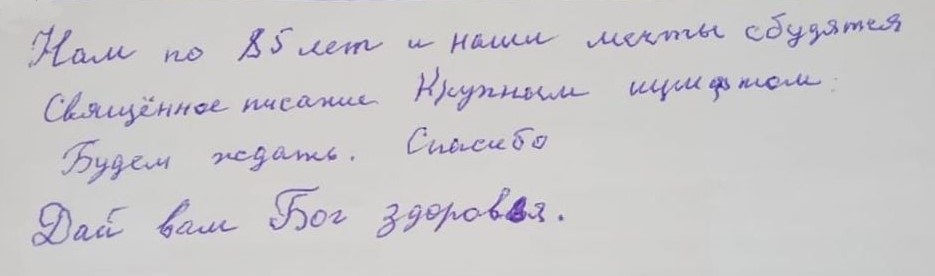 Нам по 85 лет и наши мечты сбудятся
Священное писание Крупным шрифтом.
Будем ждать. Спасибо
Дай вам Бог здоровья.